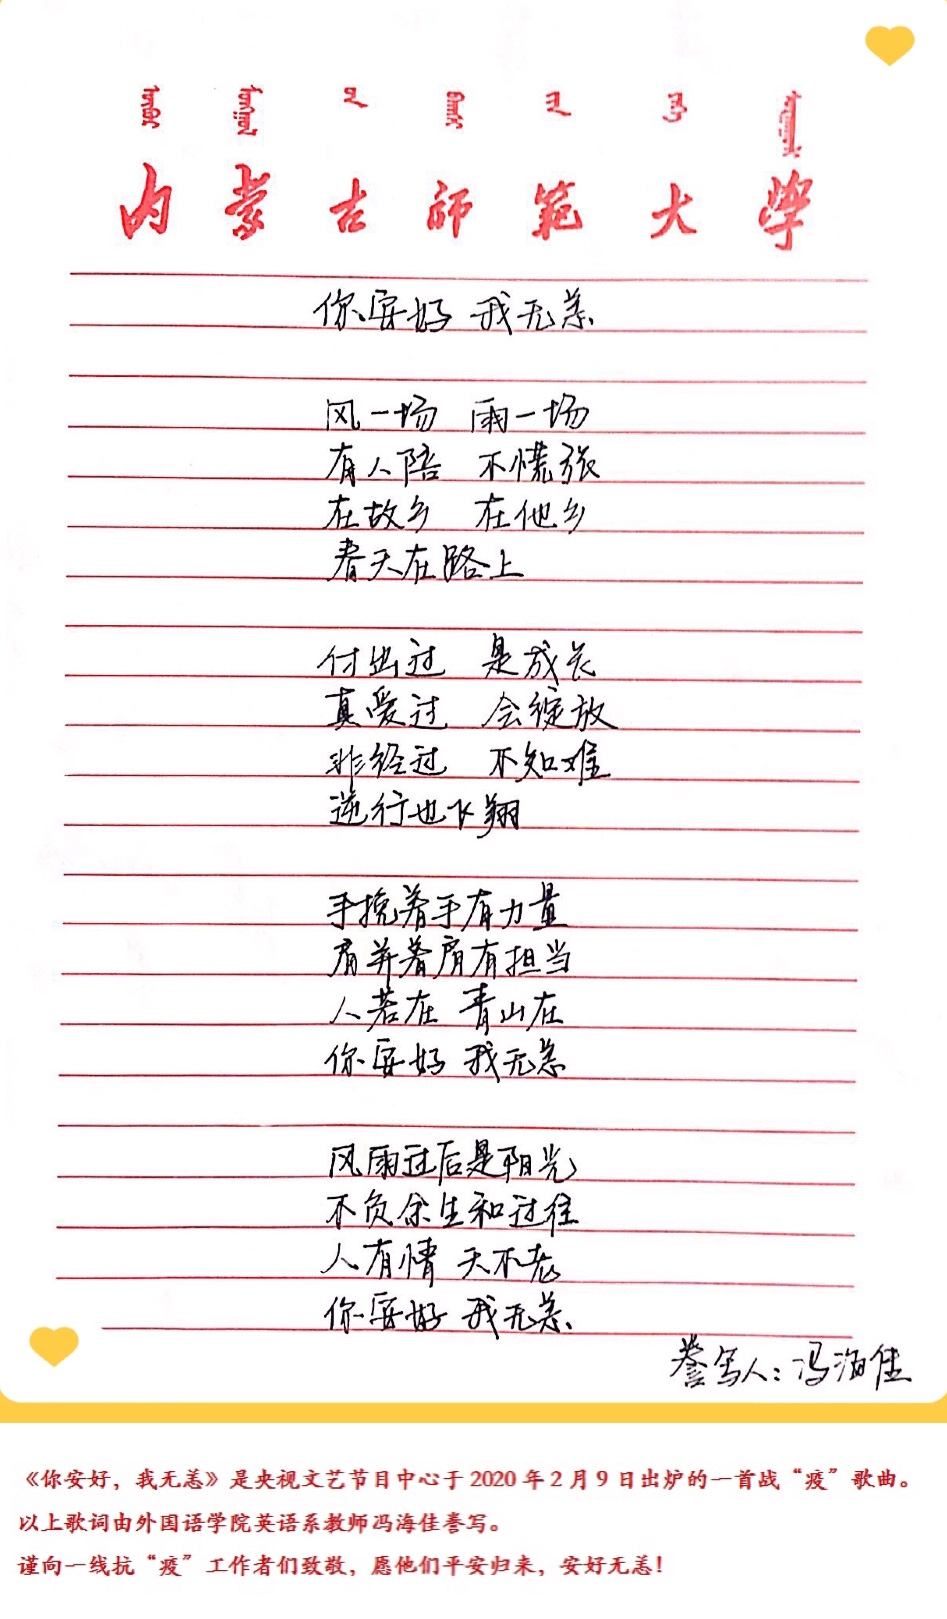 内蒙古师范大学
你安好 我无恙
风一场 雨一场
有人陪 不慌张
在故乡 在他乡
春天在路上
付出过 是成长
真爱过 会绽放
非经过 不知难
逆行也飞翔
手挽着手有力量
肩并着肩有担当
人若在 青山在
你安好 我无恙
风雨过后是阳光
不负余生和过往
人有情 天不老
你安好 我无恙
誊写人：冯海佳
《你安好，我无恙》是央视文艺节目中心于2020年2月9日出炉的一首战“疫”歌曲。
以上歌词由外国语学院英语系教师冯海佳誊写。
谨向一线抗“疫”工作者们致敬，愿他们平安归来，安好无恙！